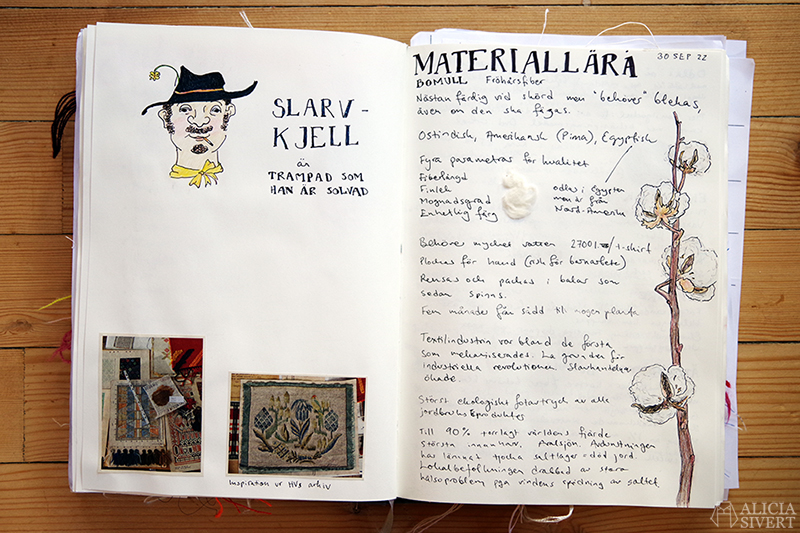 SLARV-
KJELL
är
TRAMPAD SOM
HAN ÄR SOLVAD
Inspiration ur HV:s arkiv
MATERIALLÄRA
30 SEP 22
BOMULL Fröhårsfiber
Nästan färdig vid skörd men "behöver" blekas,
även om den ska färgas.
Ostindisk, Amerikansk (Pima), Egyptisk
Fyra parametrar för kvalitet
Fiberlängd
Finlek
Mognadsgrad
Enhetlig färg
odlas i Egypten
men är från
Nord-Amerika
Behöver mycket vatten 2700 l /t-shirt
Plockas för hand (risk för barnarbete)
Rensas och packas i balar som
sedan spinns.
Fem månader från sådd till mogen planta
Textilindustrin var bland de första
som mekaniserades. La grunden för
industriella revolutionen. Slavhandeln
ökade.
Störst ekologiskt fotavtryck av alla
jordbruksprodukter
Till 90% torrlagt världens fjärde
största innanhav, Aralsjön. Avdunstningen
har lämnat tjocka saltlager = död jord
Lokalbefolkningen drabbad av stora
hälsoproblem pga vindens spridning av saltet.
ALICIA
SIVERT